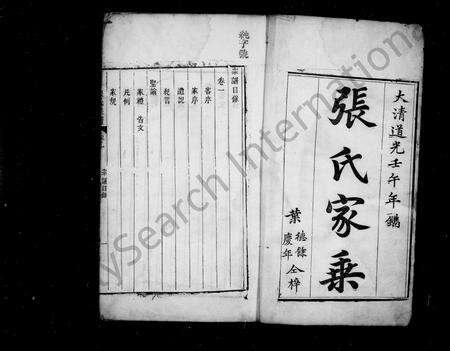 大清道光壬午年鐫
張氏家乘
葉
德馀
慶年
仝梓
純字號
宗譜目錄
卷一
舊序
家序
遺說
祀言
聖諭
家禮 告文
凡例
家規
宗譜目錄
ySearch International